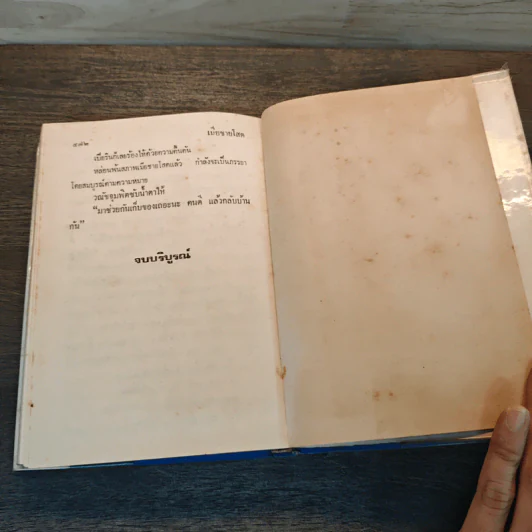 ๔๗๒ เมียชายโสด
เบือรันก็เลยร้องไห้ด้วยความตื้นตัน
หล่อนพ้นสภาพเมียชายโสดแล้ว กำลังจะเป็นภรรยา
โดยสมบูรณ์ตามความหมาย
จุมพิตซับน้ำตาให้
“มาช่วยกันเก็บของเถอะนะ คนดี แล้วกลับบ้าน
กัน”
จบบริบูรณ์